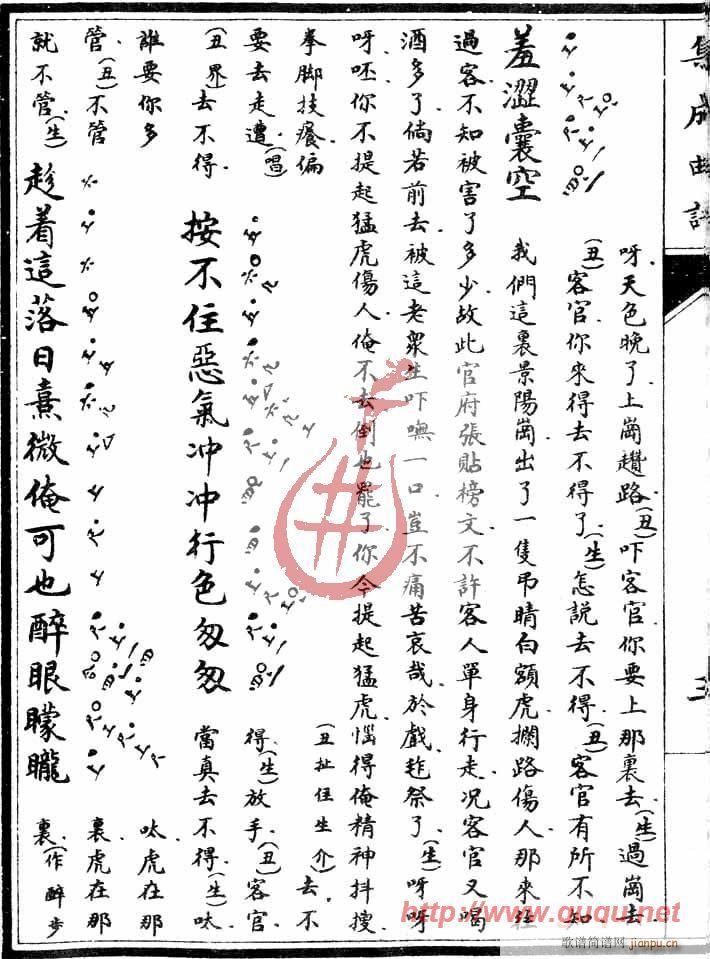 集成曲譜
三
羞澀囊空
呀天色晚了上崗趲路(丑)吓客官你要上那裏去(生)過崗去
(丑)客官你來得去不得了(生)怎説去不得(丑)客官有所不知
我們這裏景陽崗出了一隻弔睛白額虎攔路傷人那來往
過客不知被害了多少故此官府張貼榜文不許客人單身行走况客官又喝
酒多了倘若前去被這老衆生吓嘸一口豈不痛苦哀哉於戲
祭了(生)呀呀
呀呸你不提起猛虎傷人俺不去倒也罷了你今提起猛虎惱得俺精神抖擻
拳脚技癢偏
要去走遭(唱)
(丑界)去不得
按不住惡氣冲冲行色匆匆
(丑扯住生介)去不
得(生)放手(丑)客官
當真去不得(生)呔
誰要你多
管(丑)不管
就不管(生)
趁着這落日熹微俺可也醉眼矇矓
呔虎在那
裏虎在那
裏(作醉步
http://www.gugu.net
歌谱简谱网
jianpu.cn